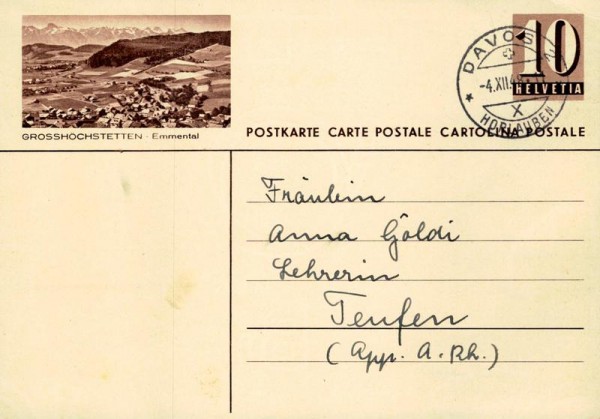 GROSSHÖCHSTETTEN - Emmental
10
HELVETIA
DAVOS
-4.XII.
X
HORLAUBEN
POSTKARTE CARTE POSTALE CARTOLINA POSTALE
Fräulein
Anna Göldi
Lehrerin
Teufen
(App. A. Rh.)